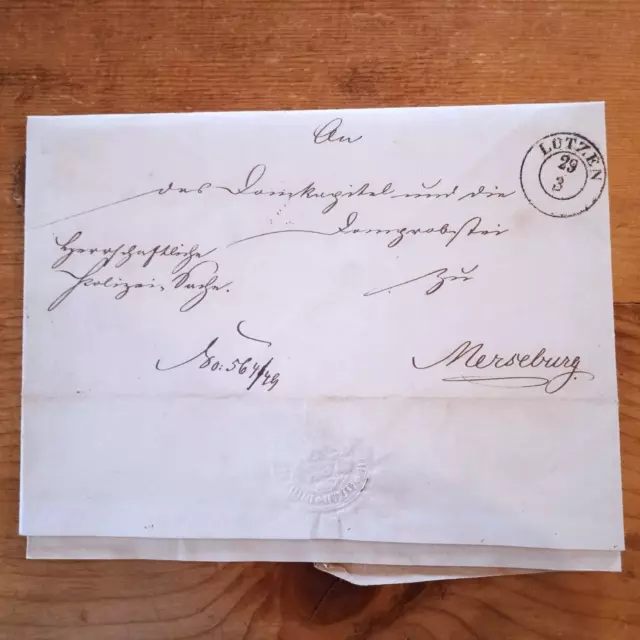 An
LÜTZEN
29
3
das Domkapitel und die
Domprobstei
Herrschaftliche
Polizei Sache.
zu
No: 564/49
Merseburg.